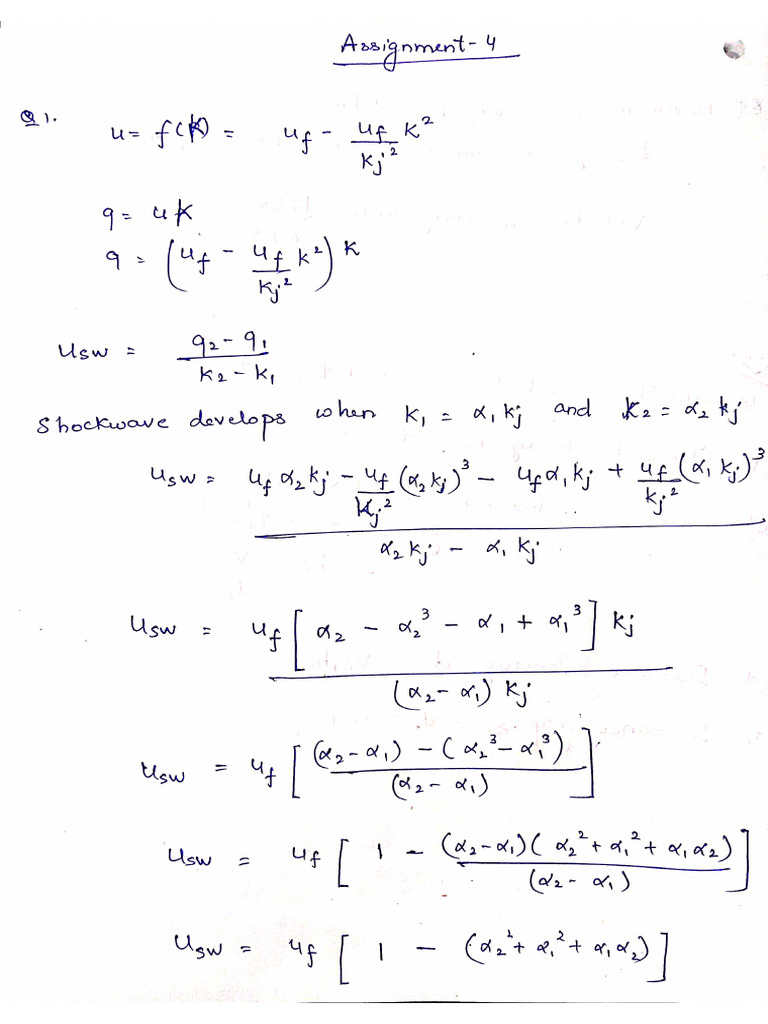 Assignment-4
Q1.
u = f(k) = u_f - (u_f / k_j²) k²
q = uk
q = (u_f - (u_f / k_j²) k²) k
u_sw = (q₂ - q₁) / (k₂ - k₁)
Shockwave develops when k₁ = α₁ k_j and k₂ = α₂ k_j
u_sw = (u_f α₂ k_j - (u_f / k_j²) (α₂ k_j)³ - u_f α₁ k_j + (u_f / k_j²) (α₁ k_j)³) / (α₂ k_j - α₁ k_j)
u_sw = u_f [α₂ - α₂³ - α₁ + α₁³] k_j / ((α₂ - α₁) k_j)
u_sw = u_f [((α₂ - α₁) - (α₂³ - α₁³)) / (α₂ - α₁)]
u_sw = u_f [1 - (α₂ - α₁)(α₂² + α₁² + α₁α₂) / (α₂ - α₁)]
u_sw = u_f [1 - (α₂² + α₁² + α₁α₂)]